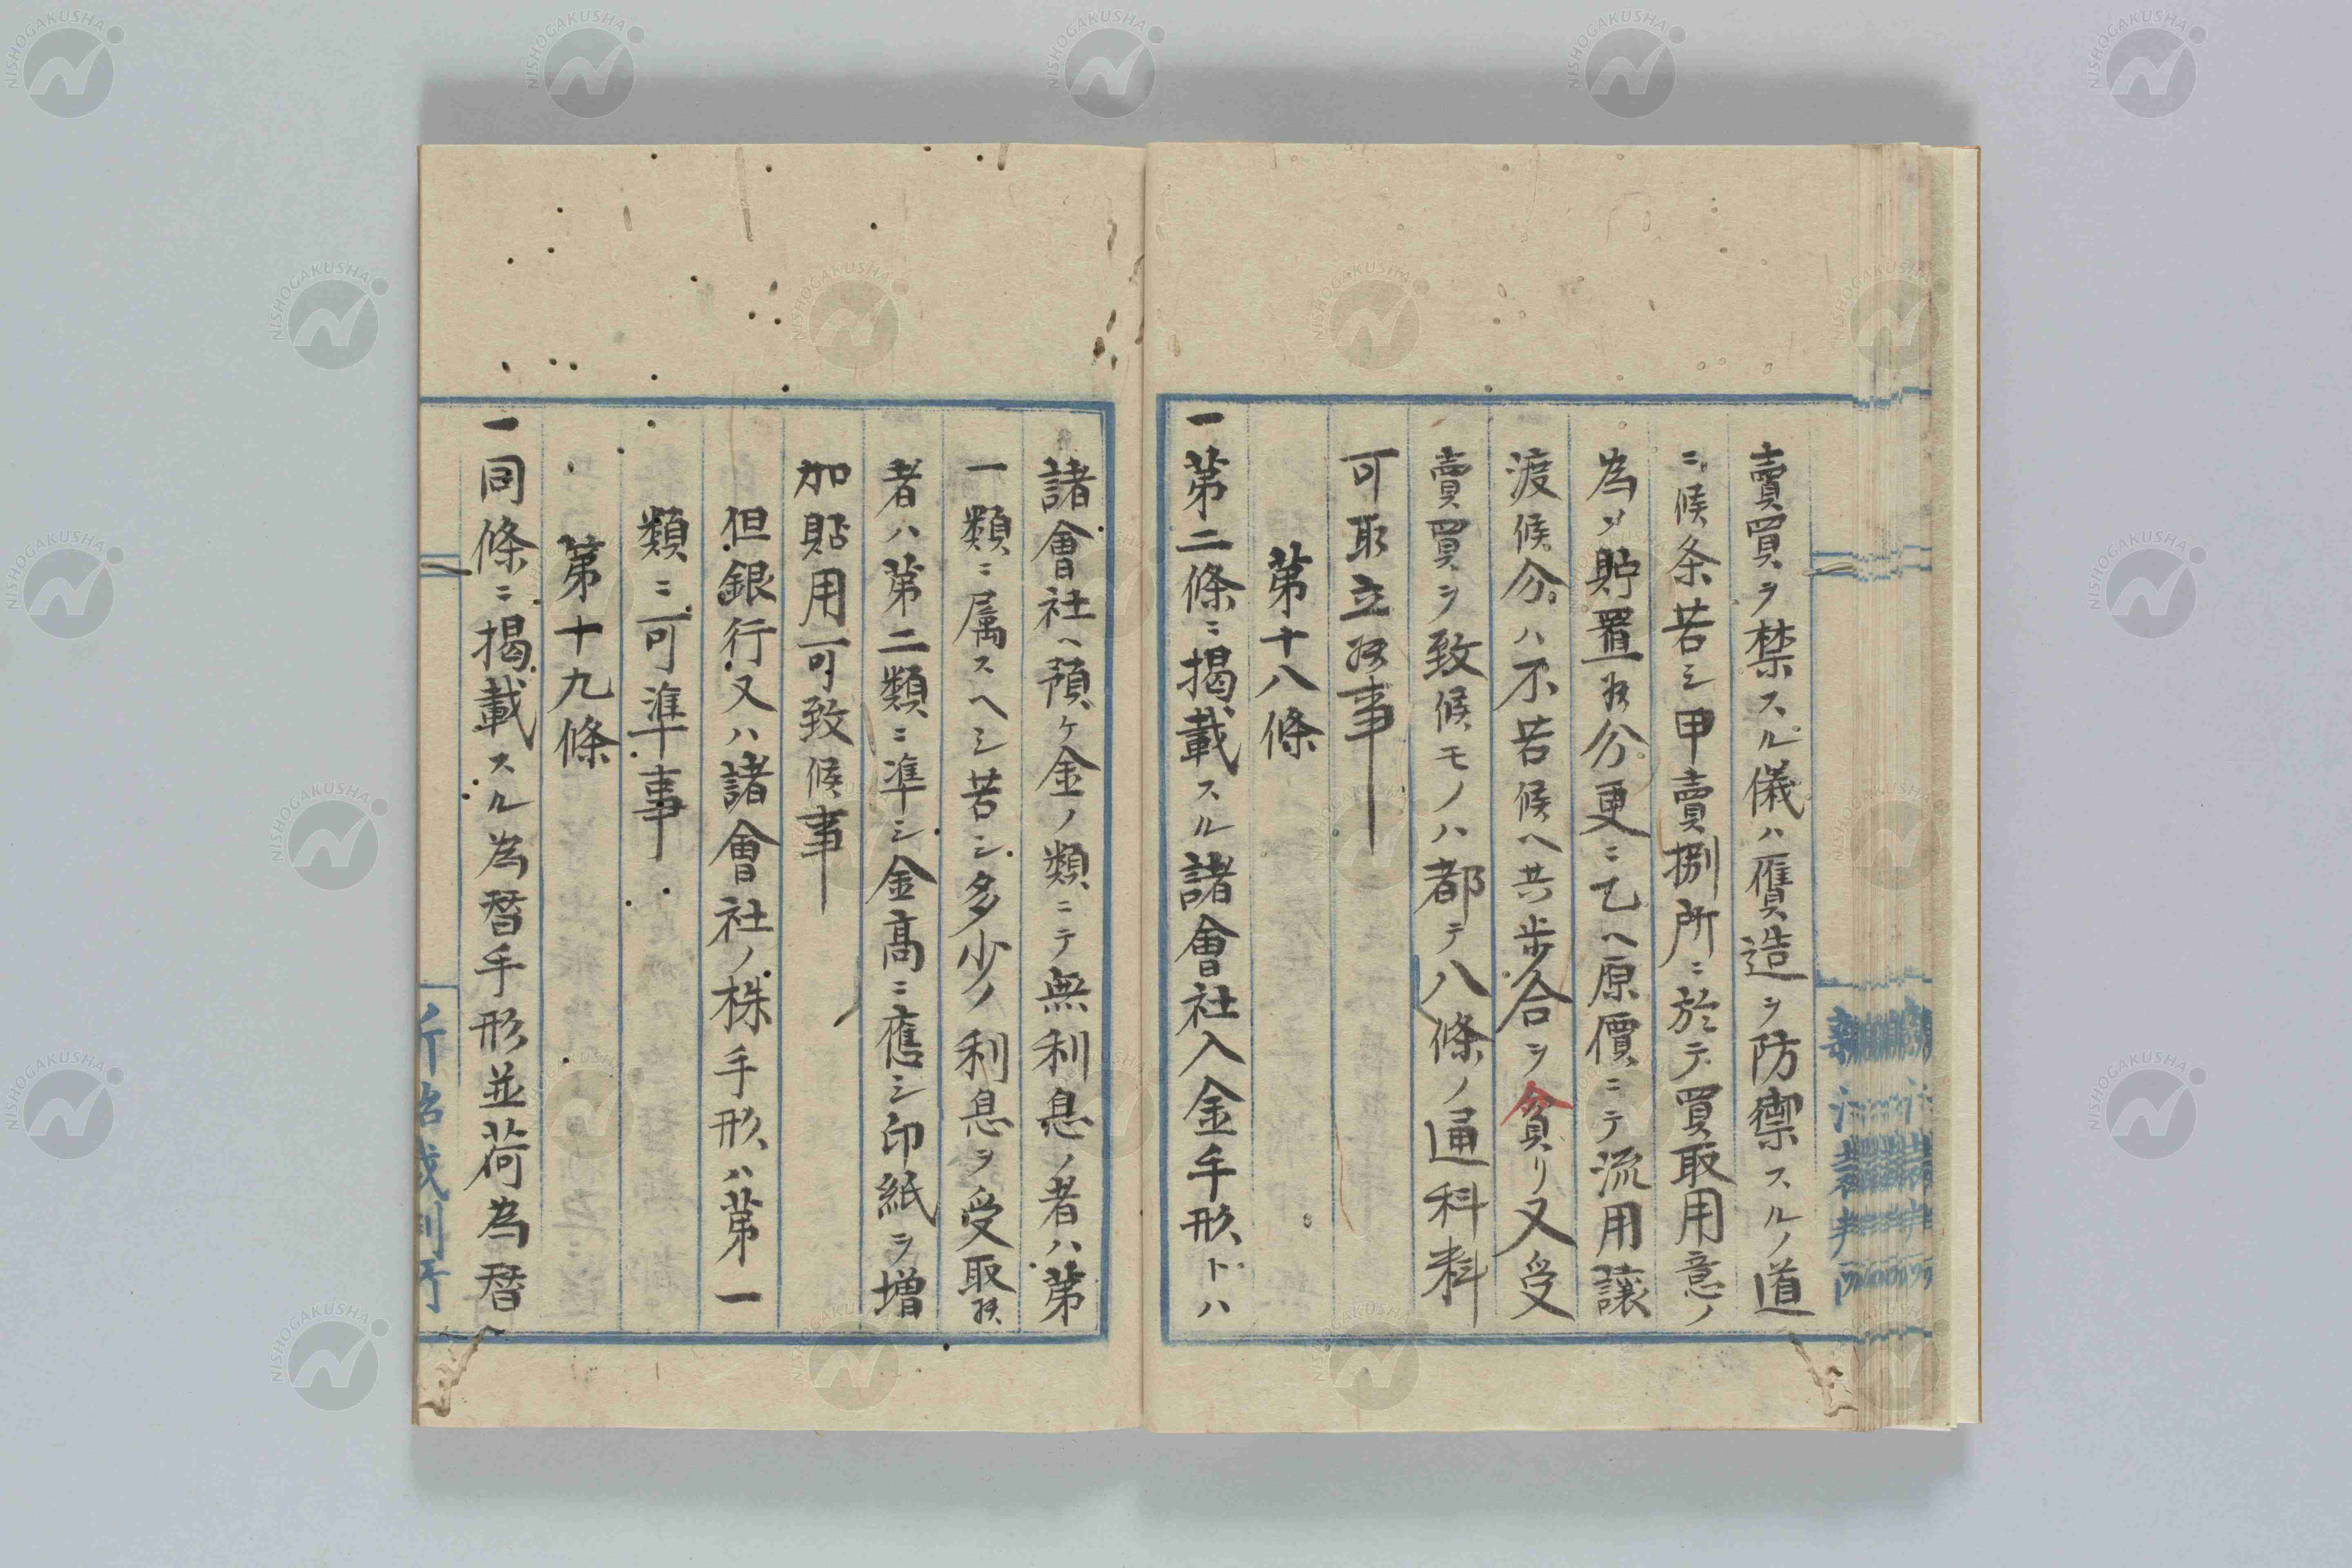 賣買ヲ禁スル儀ハ贋造ヲ防禦スルノ道
ニ候条若シ甲賣捌所ニ於テ買取用意ノ
為メ貯置候分更ニ乙ヘ原價ニテ流用讓
渡候分ハ不苦候ヘ共歩合ヲ貪リ又受
賣買ヲ致候モノハ都テ八條ノ通科料
可取立候事
第十八條
一第二條ニ揭載スル諸會社入金手形トハ
諸會社ヘ預ケ金ノ類ニテ無利息ノ者ハ第
一類ニ属スヘシ若シ多少ノ利息ヲ受取候
者ハ第二類ニ準シ金高ニ應シ印紙ヲ増
加貼用可致候事
但銀行又ハ諸會社ノ株手形ハ第一
類ニ可準事
第十九條
一同條ニ揭載スル為替手形並荷為替ヘ
NISHOGAKUSHA